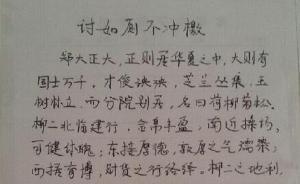 讨如厕不冲檄
郑大正大,正则居华夏之中,大则有
国士万千,才俊泱泱,芝兰丛聚,玉
树林立,而分院别居,名曰荷柳菊松。
柳二北临建行,含帛丰盈,南近操场,
可健体魄;东接厚德,敦厚之气
西揽育博,财货之行络绎。柳二之地利,